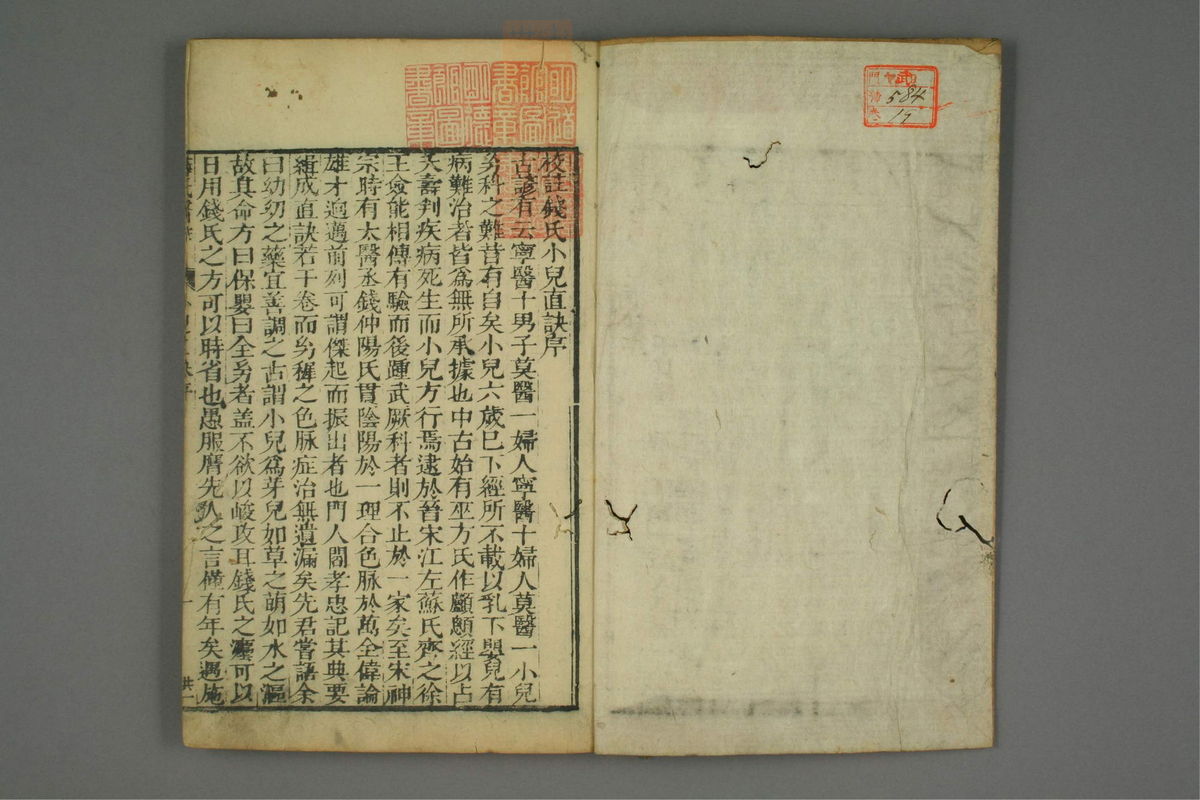 校註錢氏小兒直訣序
古諺有云寧醫十男子莫醫一婦人寧醫十婦人莫醫一小兒
㓜科之難昔有自矣小兒六歲已下經所不載以乳下嬰兒有
病難治者皆爲無所承據也中古始有巫方氏作顱顖經以占
夭壽判疾病死生而小兒方行焉逮於晉宋江左蘇氏齊之徐
王僉能相傳有驗而後踵武厥科者則不止於一家矣至宋神
宗時有太醫丞錢仲陽氏貫陰陽於一理合色脉於萬全偉論
雄才逈邁前列可謂傑起而振出者也門人閻孝忠記其典要
緝成直訣若干卷而㓜穉之色脉症治無遺漏矣先君嘗語余
曰幼㓜之藥宜善調之古謂小兒爲芽兒如草之萌如水之漚
故其命方曰保嬰曰全㓜者盖不欲以峻攻且錢氏之書可以
日用錢氏之方可以時省也愚服膺先人之言僅有年矣遇施
一
共一
584
17